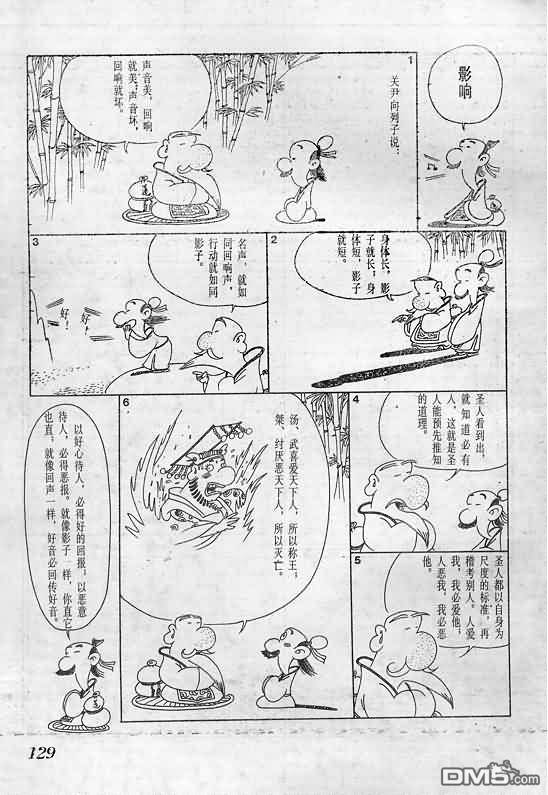 影响
1
关尹向列子说：
声音美，回响
就美；声音坏，
回响就坏。
2
身体长，影
子就长；身
体短，影子
就短。
3
名声，就如
同回响声，
行动就如同
影子。
好！
好！
4
圣人看到出，
就知道必有
人，这就是圣
人能预先推知
的道理。
5
圣人都以自身为
尺度的标准，再
稽考别人。人爱
我，我必爱他；
人恶我，我必恶
他。
6
汤、武喜爱天下人，所以称王；
桀、纣厌恶天下人，所以灭亡。
以好心待人，必得好的回报；以恶意
待人，必得恶报。就像影子一样，你直它
也直；就像回声一样，好音必回传好音。
129
DM5.com